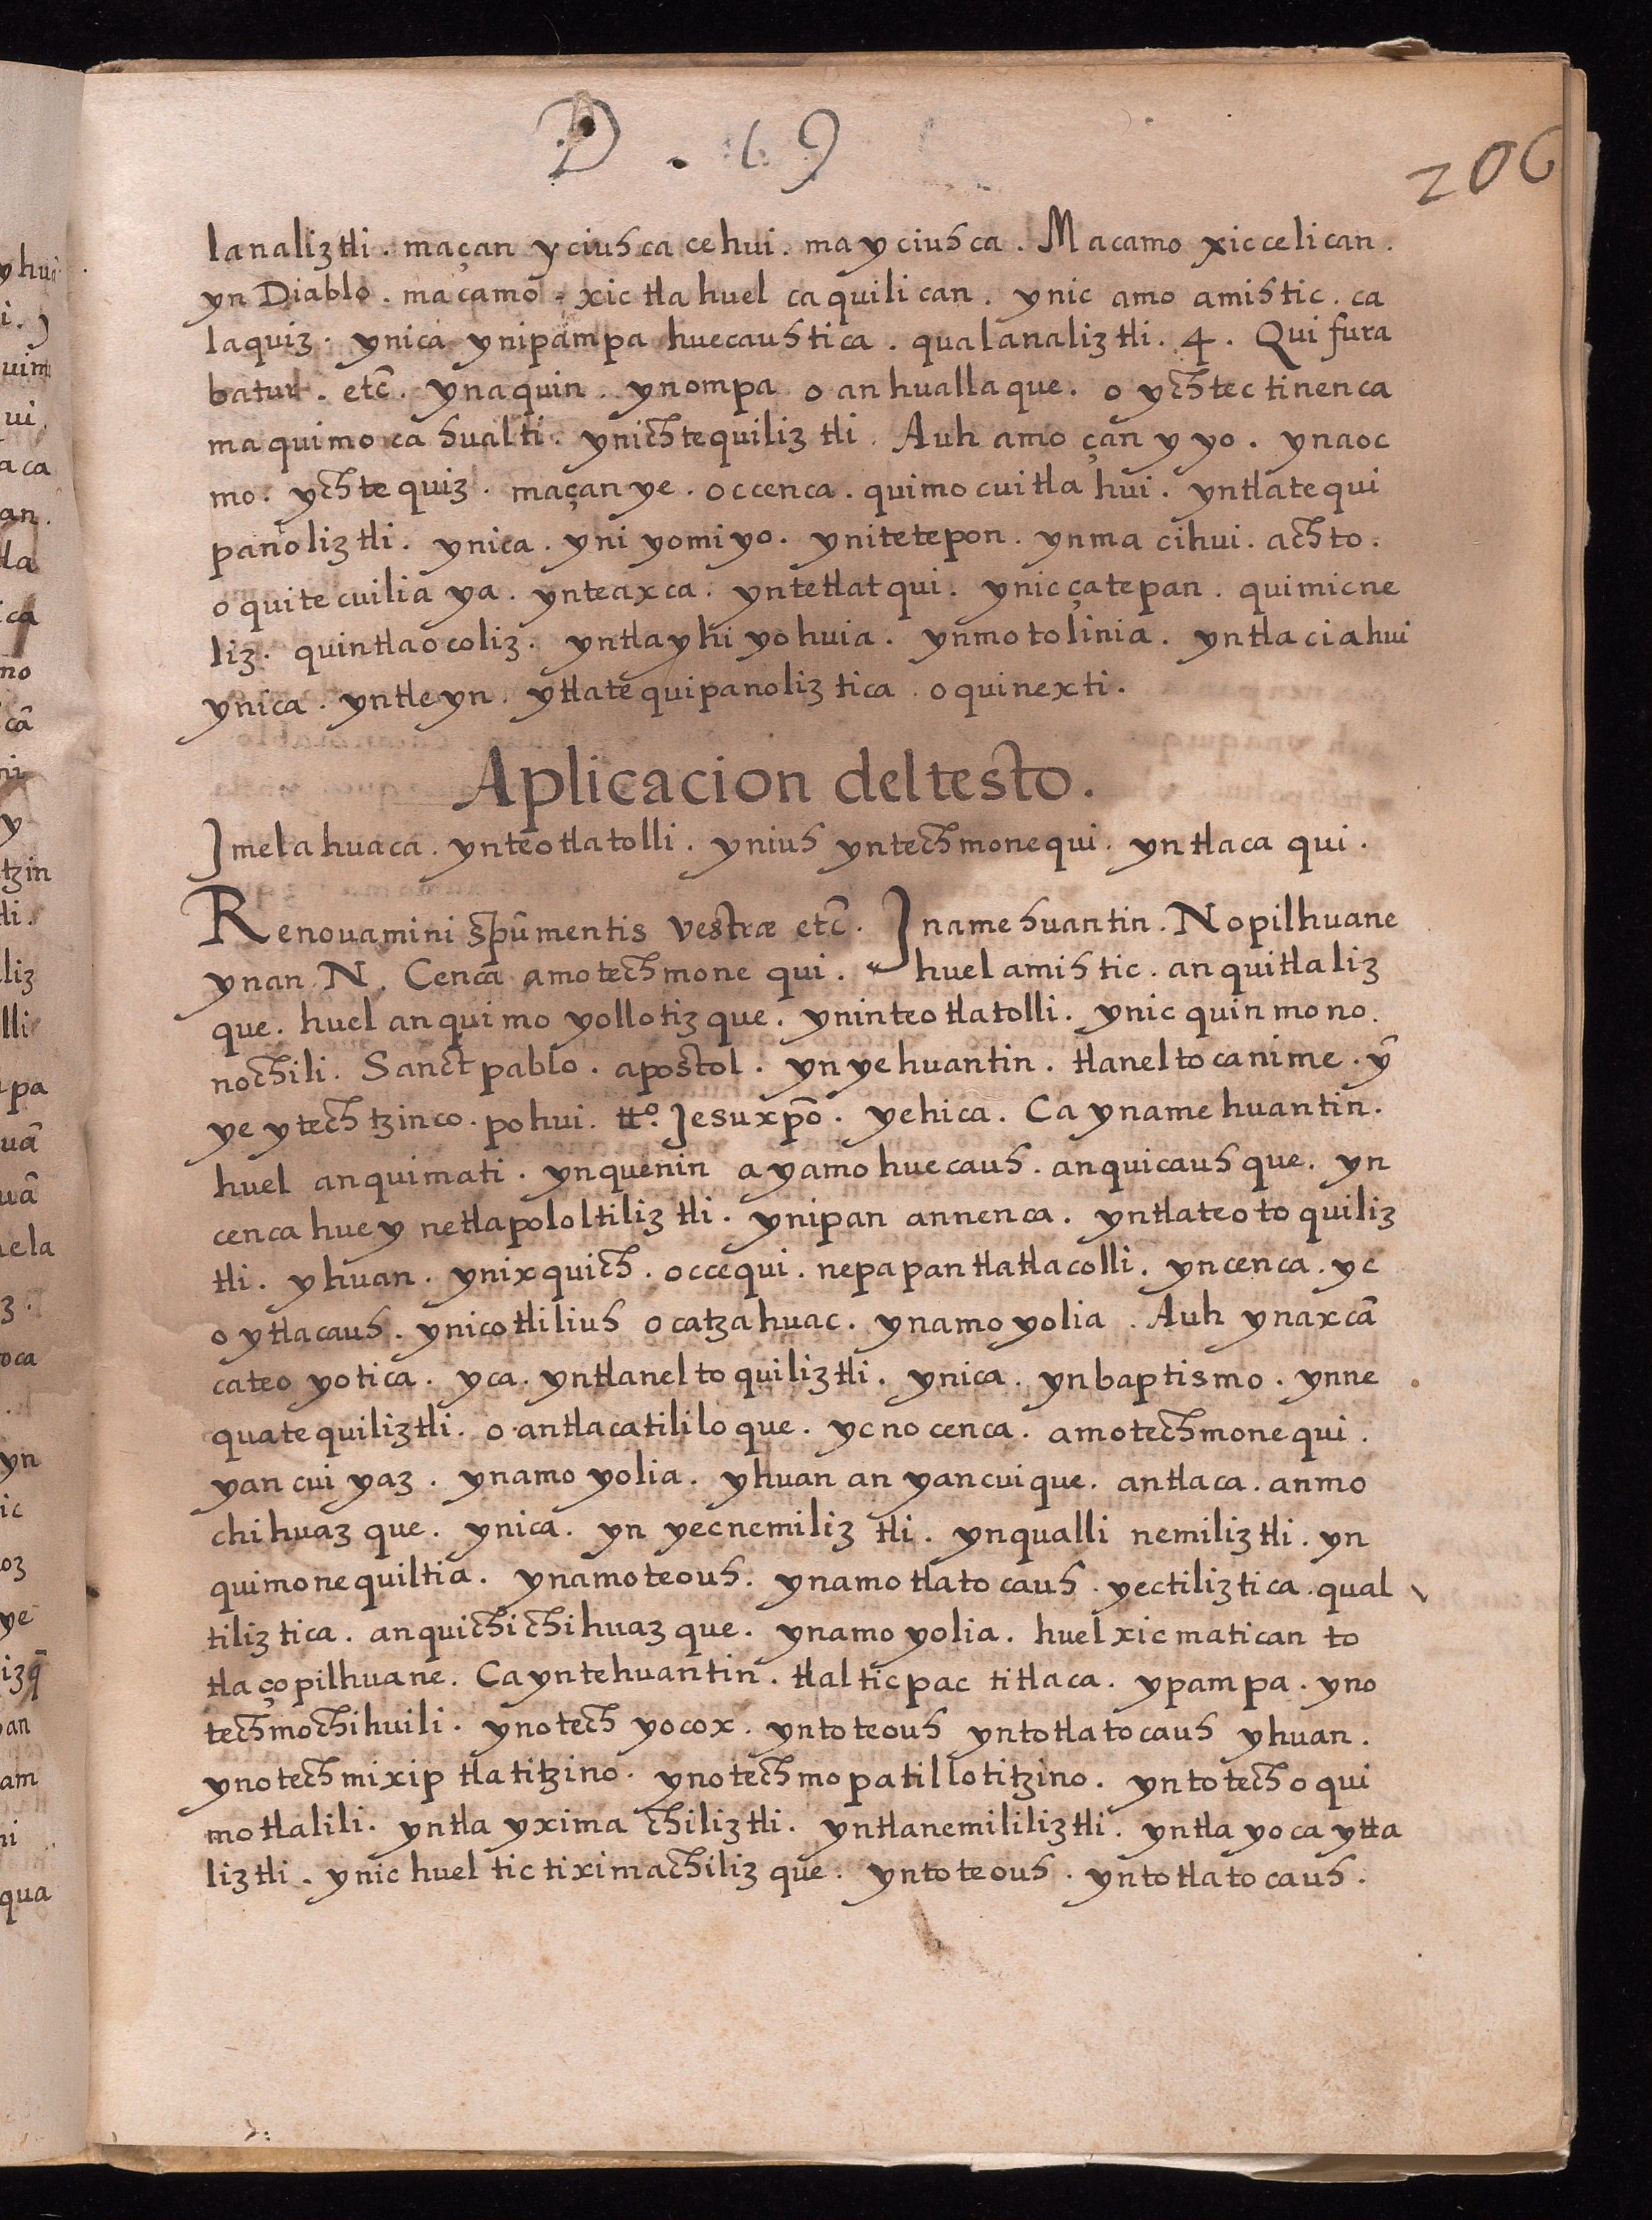 D. 19
206
lanaliztli. maçan yciuhca cehui. ma yciuhca. Macamo xiccelican.
yn Diablo. maçamo. xic tlahuel caquilican. ynic amo amihtic. ca
laquiz. ynica ynipampa huecauhtica. qualanaliztli. 4. Qui fura
batur. etc̃. ynaquin. ynompa o anhuallaque. o ychtec tinenca
maquimo cahualti. ynichtequiliztli. Auh amo çan yyo. ynaoc
mo. ychtequiz. maçan ye. occenca. quimocuitlahui. yntlatequi
panoliztli. ynica. yni yomiyo. ynitetepon. ynma cihui. achto.
o quitecuilia ya. ynteaxca. yntetlatqui. ynic çatepan. quimicne
liz. quintlaocoliz. yntlayhiyohuia. ynmotolinia. yntlaciahui
ynica. yntleyn. ytlatequipanoliztica. oquinexti.
Aplicacion deltesto.
Jmelahuaca. ynteotlatolli. yniuh yntechmonequi. yntlaca qui.
Renouamini spũ mentis vestræ etc̃. Jnamehuantin. Nopilhuane
ynan N. Cenca amotechmone qui. huel amihtic. anquitlaliz
que. huel anquimo yollotizque. yninteotlatolli. ynic quinmono.
nochili. Sanct pablo. apostol. yn yehuantin. tlaneltocanime. ỹ
ye ytechtzinco. pohui. tt.º Jesuxp̃o. yehica. Ca ynamehuantin.
huel anquimati. ynquenin ayamo huecauh. anquicauhque. yn
cenca huey netlapololtiliztli. ynipan annenca. yntlateotoquiliz
tli. yhuan. ynixquich. occequi. nepapan tlatlacolli. yncenca. yc
o ytlacauh. ynic otliliuh ocatzahuac. ynamoyolia. Auh ynaxcã
cateo yotica. yca. yntlaneltoquiliztli. ynica. ynbaptismo. ynne
quatequiliztli. o antlacatililoque. yc no cenca. amotechmonequi.
yancuiyaz. ynamo yolia. yhuan an yancuique. antlaca. anmo
chihuazque. ynica. yn yecnemiliztli. ynqualli nemiliztli. yn
quimonequiltia. ynamoteouh. ynamotlatocauh. yectiliztica. qual
tiliztica. anquichichihuazque. ynamo yolia. huel xicmatican to
tlaçopilhuane. Ca yntehuantin. tlalticpac titlaca. ypampa. yno
techmochihuili. ynotech yocox. yntoteouh yntotlatocauh yhuan.
ynotechmixiptlatitzino. ynotechmopatillotitzino. yntotech oqui
motlalili. yntla yximachiliztli. yntlanemililiztli. yntla yocaytta
liztli. ynic huel tictiximachilizque. yntoteouh. yntotlatocauh.